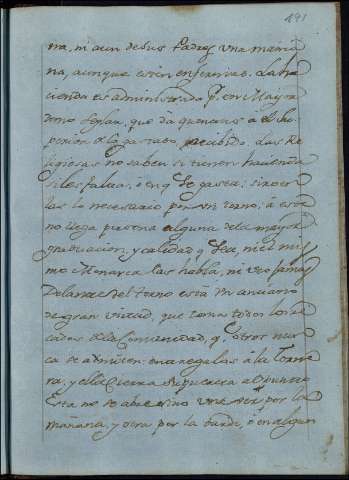 191
na, ni aun de sus Padres, una maña
na, aunque estén enfermas. La ha
cienda es administrada p.r un Mayor
domo seglar, que da quentas a el Su
perior de lo gastado, y recibido. Las Re
ligiosas no saben si tienen hacienda
si les falta, o en q se gasta; sino es
las lo necesario por un torno; á este
no llega persona alguna de la mayor
graduacion, y calidad q sea, ni el mis
mo Monarca las habla, ni vio jamas
Delante del torno está un anciano
de gran virtud, que toma todos los re
cados de la Comunidad, q otros nun
ca se admiten: entregalas á la Torne
ra, y ella cierra su puerta al punto
Esta no se abre sino una vez por la
mañana, y otra por la tarde, ó en algun